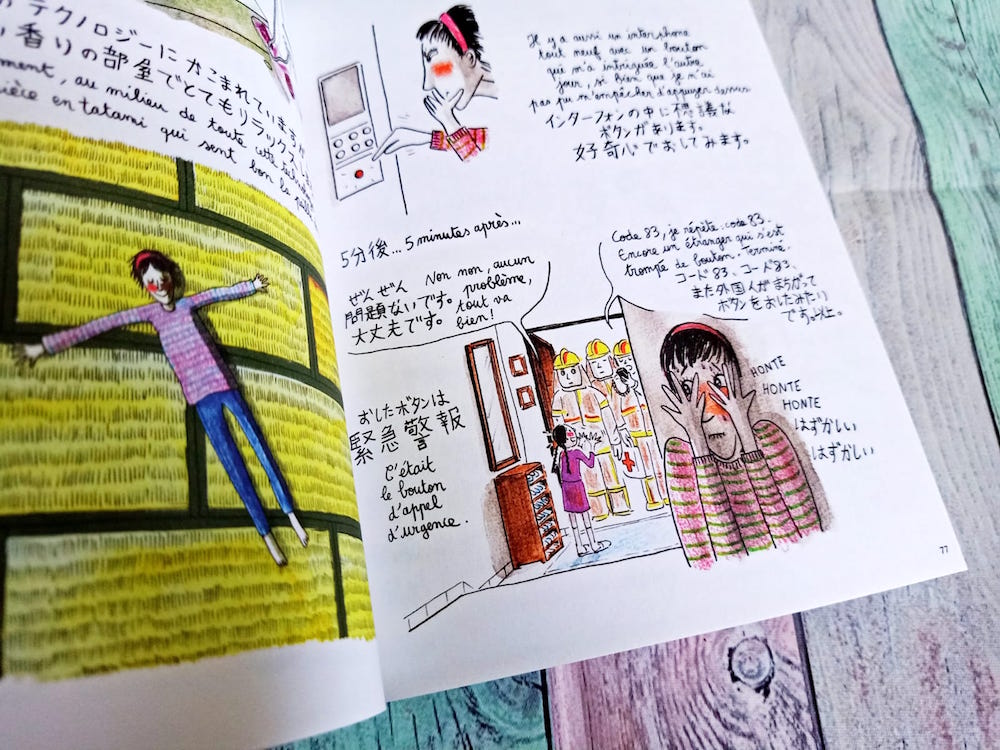 テクノロジーにかこまれています
香りの部屋でとてもリラックス
au milieu de toute cette
en tatami qui sent bon la
Il y a aussi un interphone
tout neuf avec un bouton
qui m'a intriguée l'autre
jour, si bien que je n'ai
pas pu m'empêcher d'appuyer dessus
インターフォンの中に
ボタンがあります。
好奇心でおしてみます。
5分後... 5 minutes après...
ぜんぜん
問題ないです。
大丈夫です。
Non non, aucun
problème,
tout va
bien!
Code 83, je répète: code 83.
Encore un étranger qui s'est
trompé de bouton. Terminé.
コード83、コード83、
また外国人がまちがって
ボタンをおしたみたい
です。以上。
おしたボタンは
緊急警報
C'était
le bouton
d'appel
d'urgence.
HONTE
HONTE
HONTE
はずかしい
はずかしい
77